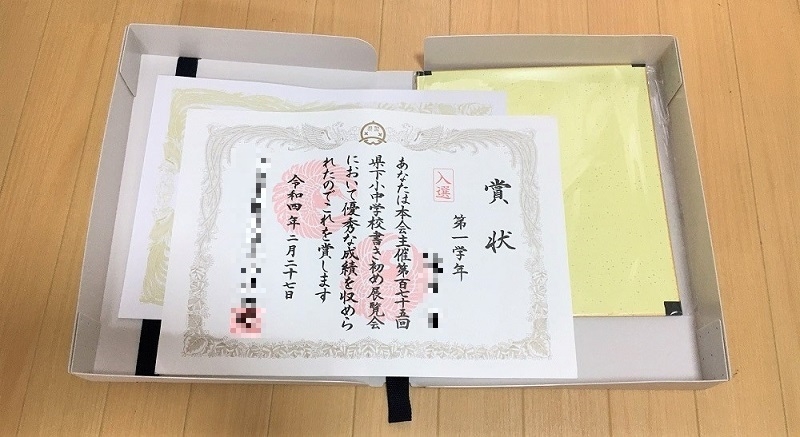 賞状
入選
第一学年
あなたは本会主催第百七十五回
県下小中学校書き初め展覧会
において優秀な成績を収めら
れたのでこれを賞します
令和四年二月二十七日